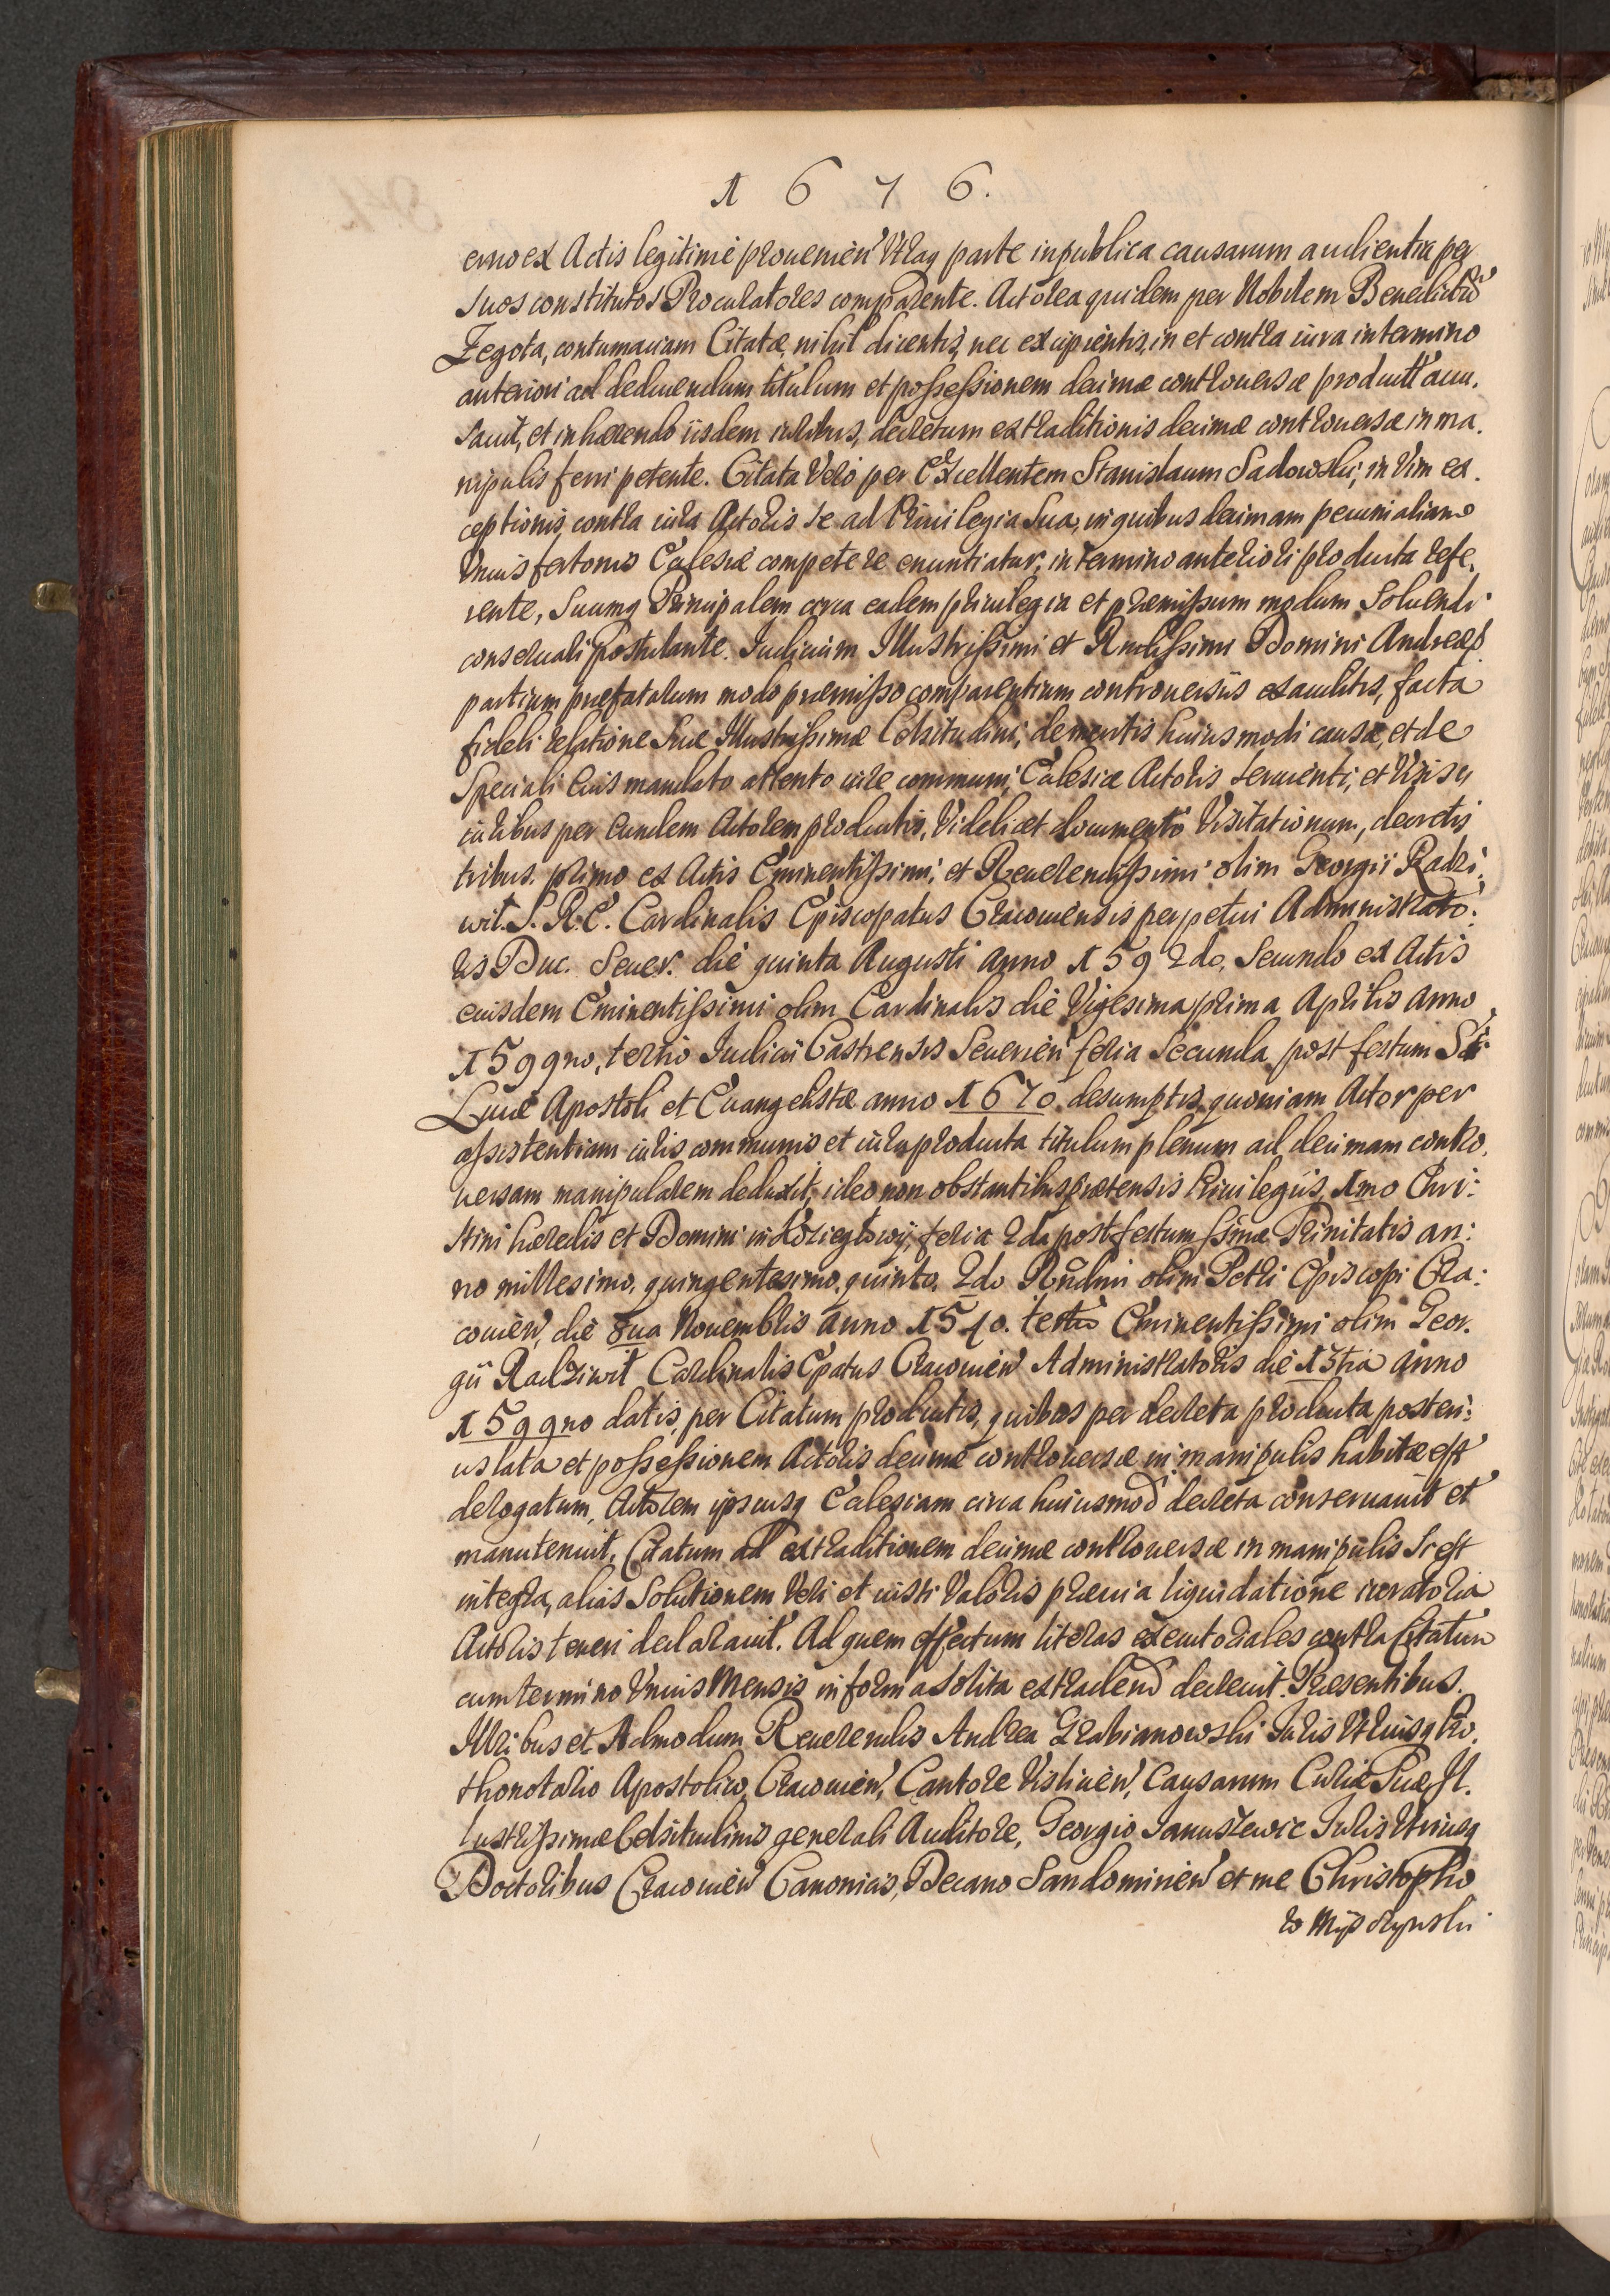 1 6 7 6.
erno ex Actis legitime proueniен̃ Utraq parte in publica causarum audientia per
suos constitutos Procuratores comparente. Actorea quidem per Nobilem Benedictũ
Zegota, contumaciam Citatæ, nihil dicentis, nec excipientis, in et contra iura in termino
anteriori ad deducendum titulum et possessionem decimæ controuersæ product' accu.
sauit, et inhærendo iisdem iuribus, decretum extraditionis decimæ controuersæ in ma.
nipulis ferri petente. Citata Vero per Excellentem Stanislaum Sadowski, in Vim ex.
ceptionis contra iura Actoris se ad Priuilegia Sua, in quibus decimam pecunialiam
Unius fertonis Ecclesiæ competere enuntiatur, in termino anteriori producta refe.
rente, Suumq Principalem circa eadem priuilegia et præmissum modum Soluendi
conseruari postulante. Iudicium Illustrissimi et Rndissimi Domini Andreæ
partium præfatarum modo præmisso comparentium controuersiis exauditis, facta
fideli relatione Suæ Illustrissimæ Celsitudini, de meritis huiusmodi causæ, et de
Speciali Eius mandato attento iure communi, Ecclesiæ Actoris seruienti, et Visis
iuribus per Eundem Actorem productis, Videlicet documento Visitationum, decretis
tribus. primo ex Actis Eminentissimi, et Reuerendissimi olim Georgii Radzi:
wil. S. R. E. Cardinalis Episcopatus Cracouiensis perpetui Administrato:
ris Duc. Seuer. die quinta Augusti anno 1592do, Secundo ex Actis
eiusdem Eminentissimi olim Cardinalis die Vigesima prima Aprilis anno
1599no, tertio Iudicii Castrensis Seuerien' feria Secunda post festum Sti
Lucæ Apostoli et Euangelistæ anno 1670. desumptis, quoniam Actor per
assistentiam iuris communis et iura producta titulum plenum ad decimam contro.
uersam manipularem deduxit, ideo non obstantibus prætensis Priuilegiis, 1mo Chri:
stini hæredis et Domini in Kozieglowy, feria 2da post festum Ssmæ Trinitatis an:
no millesimo, quingentesimo, quinto. 2do Rndmi olim Petri Episcopi Cra:
couien', die 8ua Nouembris anno 1540. tertio Eminentissimi olim Geor.
gii Radziwil Cardinalis Epatus Cracouien' Administratoris die 13tia anno
1599no datis, per Citatum productis, quibus per decreta producta posteri:
us lata et possessionem Actoris decimæ controuersæ in manipulis habitæ est
derogatum, Actorem ipsiusq Ecclesiam circa huiusmodi decreta conseruauit et
manutenuit, Citatum ad extraditionem decimæ controuersæ in manipulis si est
integra, alias Solutionem Veri et iusti Valoris præuia liquidatione iuratoria
Actoris teneri declarauit. Ad quem effectum literas executoriales contra Citatum
cum termino Unius Mensis in forma solita extradend' decreuit. Præsentibus.
Illribus et Admodum Reuerendis Andrea Grabianowski Iuris Utriusq Pro.
thonotario Apostolico, Cracouien', Cantore Vislicien', Causarum Curiæ Suæ Il.
lustrissimæ Celsitudinis generali Auditore, Georgio Januszewic Iuris Utriusq
Doctoribus Cracouien' Canonicis, Decano Sandomirien' et me Christopho
ro Mijszynski